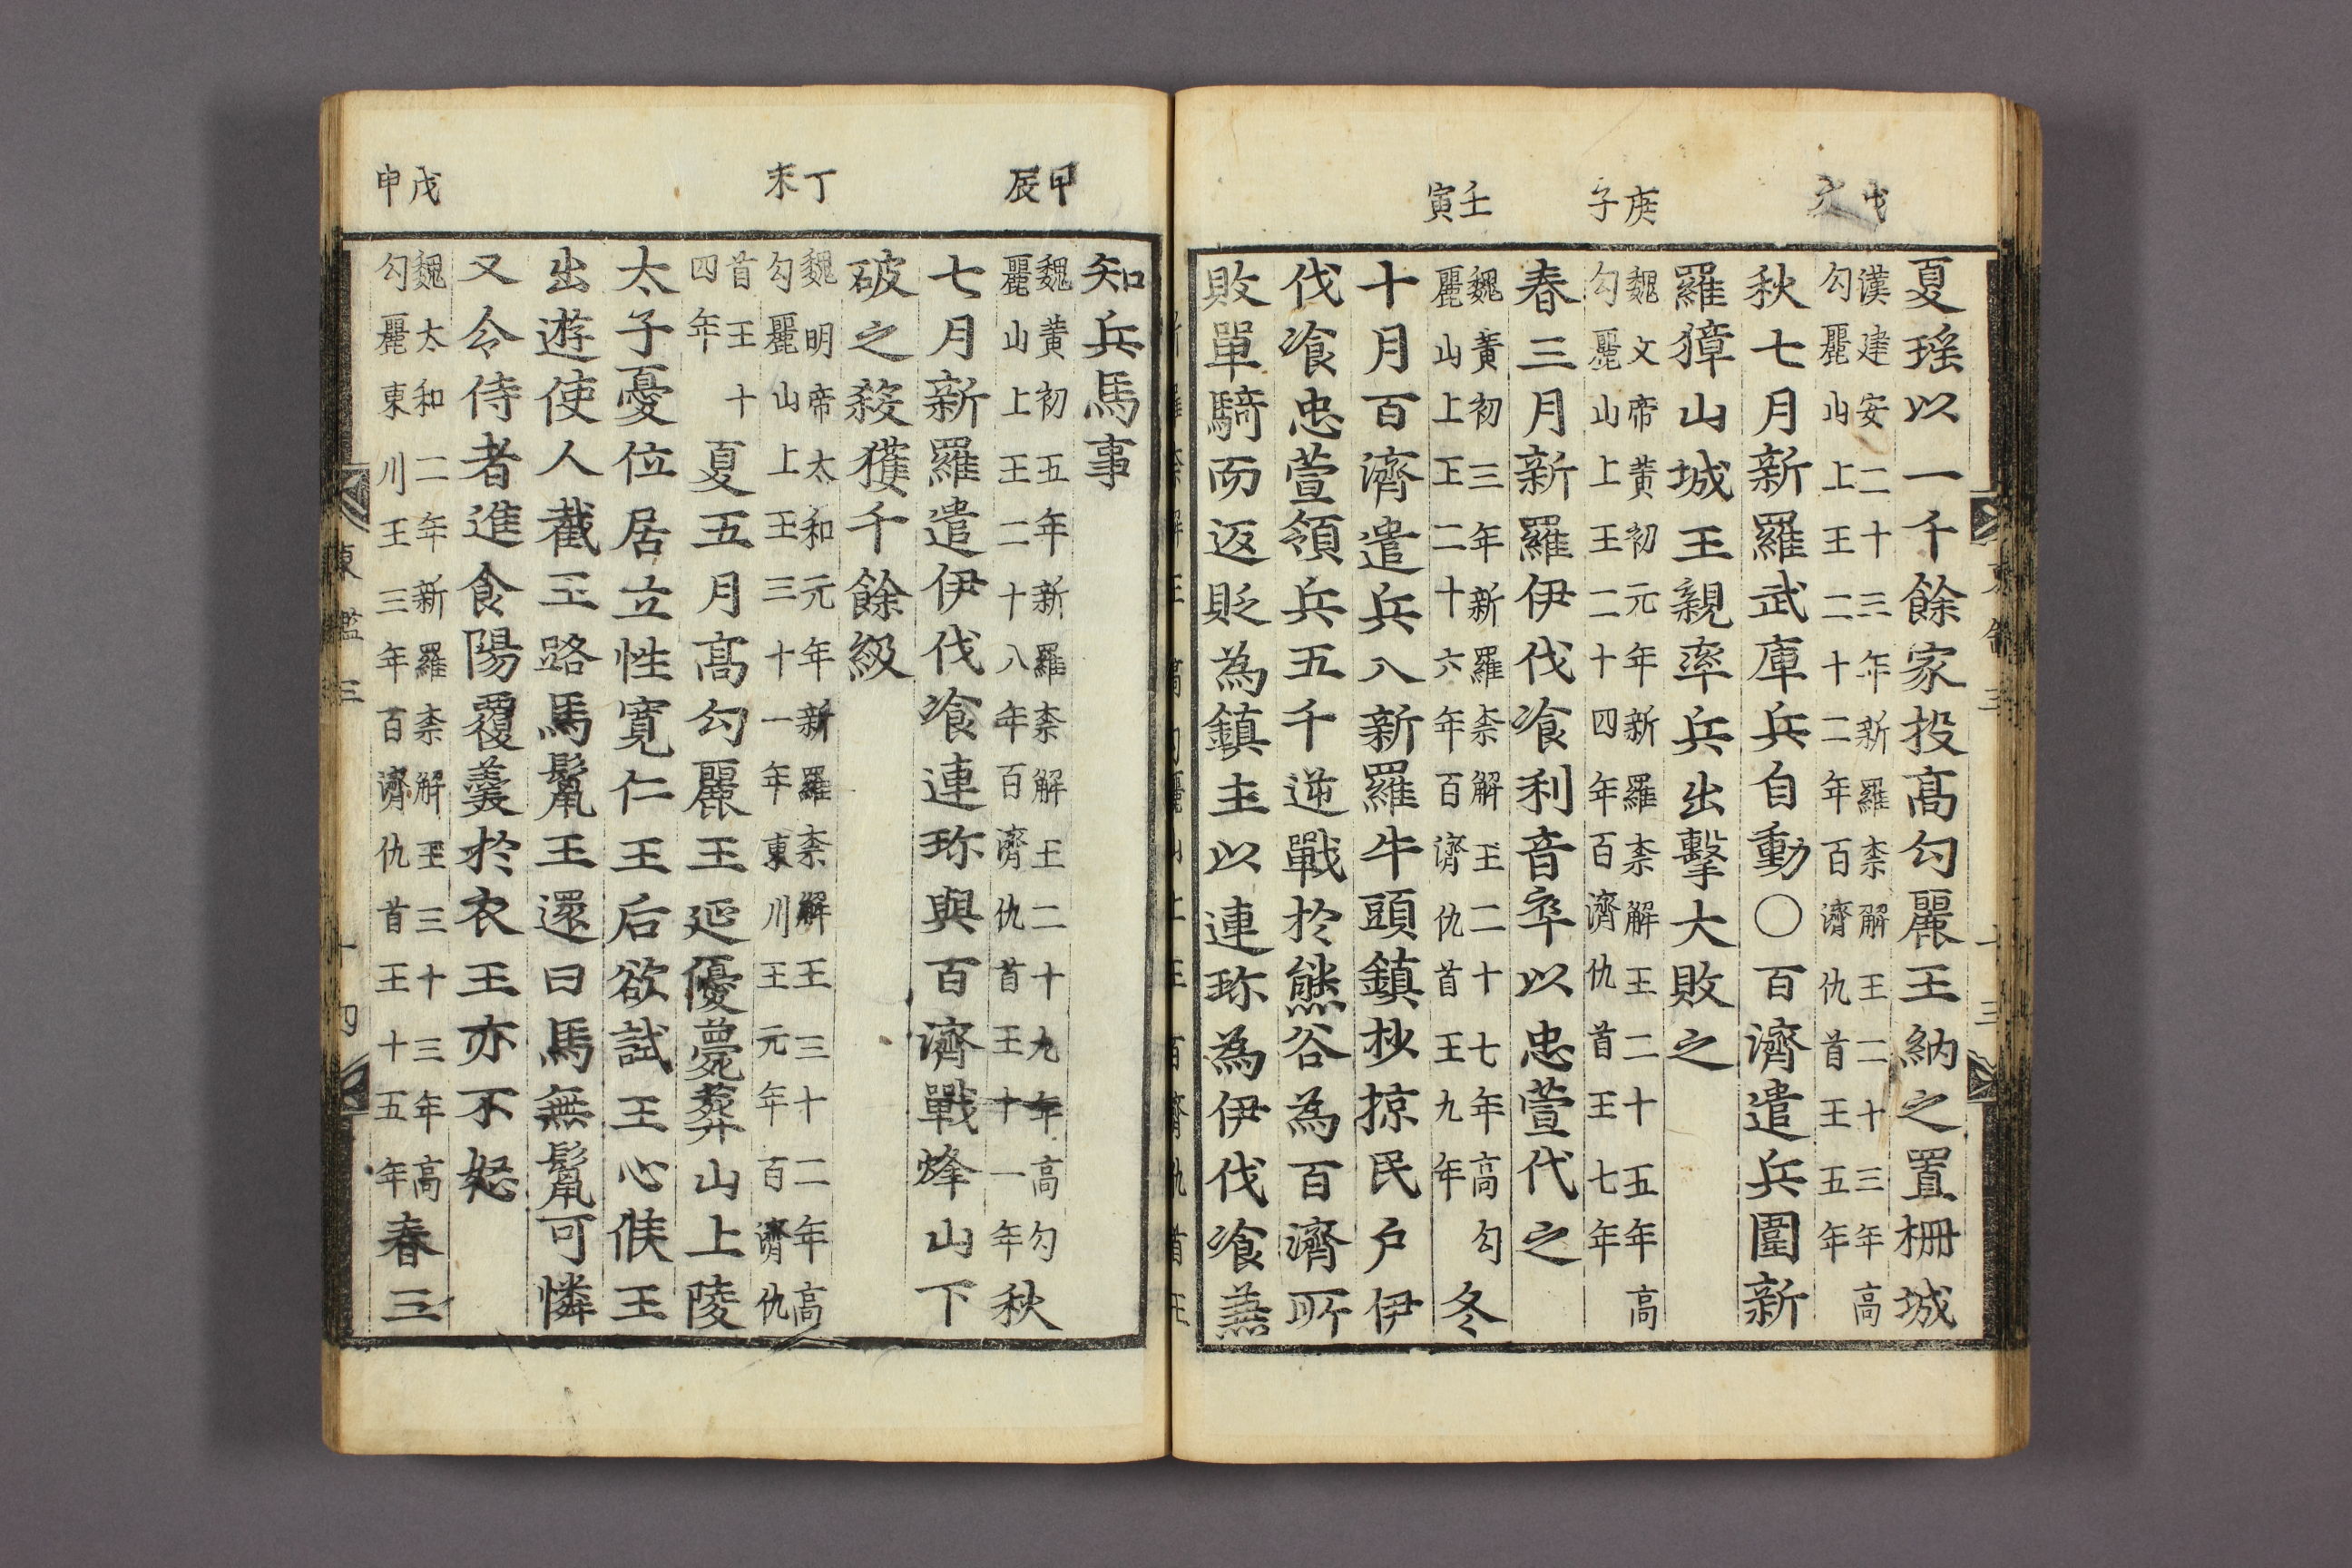 戊戌
庚子
壬寅
夏瑤以一千餘家投高勾麗王納之置柵城
漢建安二十三年新羅柰解王二十三年高
勾麗山上王二十二年百濟仇首王五年
秋七月新羅武庫兵自動〇百濟遣兵圍新
羅獐山城王親率兵出擊大敗之
魏文帝黃初元年新羅柰解王二十五年高
勾麗山上王二十四年百濟仇首王七年
春三月新羅伊伐飡利音卒以忠萱代之
魏黃初三年新羅柰解王二十七年高勾
麗山上王二十六年百濟仇首王九年
冬
十月百濟遣兵入新羅牛頭鎮抄掠民戶伊
伐飡忠萱領兵五千逆戰於熊谷為百濟所
敗單騎而返貶為鎮主以連珎為伊伐飡兼
甲辰
丁未
戊申
知兵馬事
魏黃初五年新羅柰解王二十九年高勾
麗山上王二十八年百濟仇首王十一年
秋
七月新羅遣伊伐飡連珎與百濟戰烽山下
破之殺獲千餘級
魏明帝太和元年新羅柰解王三十二年高
勾麗山上王三十一年東川王元年百濟仇
首王十
四年
夏五月高勾麗王延優薨葬山上陵
太子憂位居立性寬仁王后欲試王心候王
出遊使人截王路馬鬣王還曰馬無鬣可憐
又令侍者進食陽覆羹於衣王亦不怒
魏太和二年新羅柰解王三十三年高
勾麗東川王三年百濟仇首王十五年
春三
東鑑三
十四